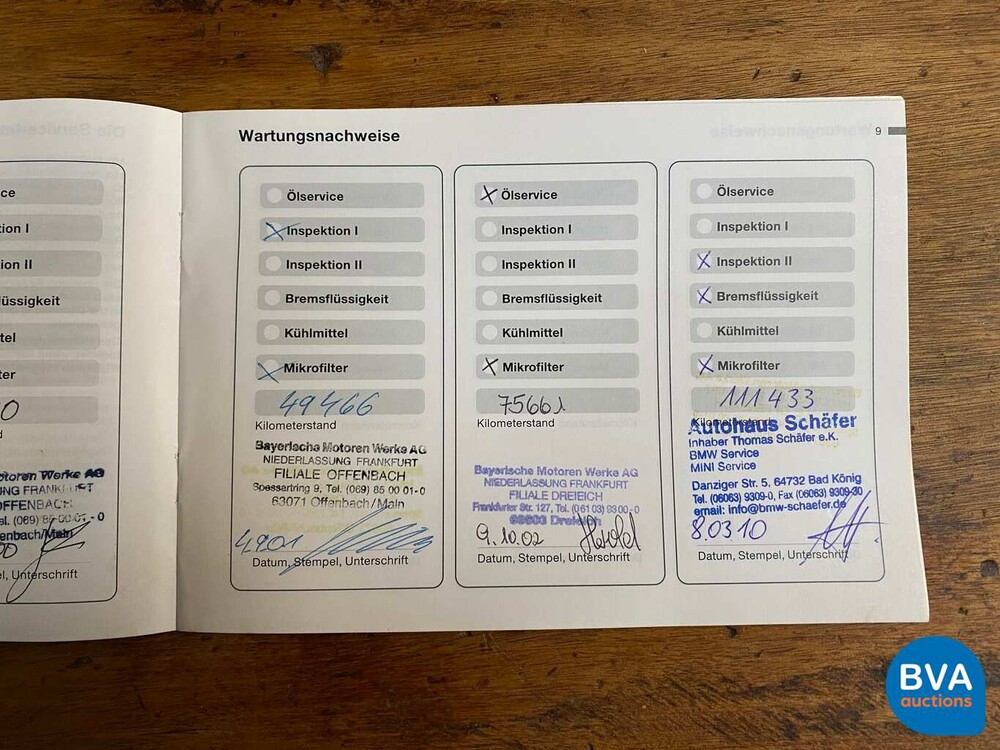 Wartungsnachweise
9
ce
ion I
ion II
lüssigkeit
tel
er
0
d
toren Werke AG
OFFENBACH
enbach/Main
el, Unterschrift
Ölservice
X Inspektion I
Inspektion II
Bremsflüssigkeit
Kühlmittel
X Mikrofilter
49466
Kilometerstand
Bayerische Motoren Werke AG
NIEDERLASSUNG FRANKFURT
FILIALE OFFENBACH
Spessartring 9, Tel. (069) 85 00 01-0
63071 Offenbach/Main
4.9.01
Datum, Stempel, Unterschrift
X Ölservice
Inspektion I
Inspektion II
Bremsflüssigkeit
Kühlmittel
X Mikrofilter
75661
Kilometerstand
Bayerische Motoren Werke AG
NIEDERLASSUNG FRANKFURT
FILIALE DREIEICH
Frankfurter Str. 127, Tel. (061 03) 9300-0
63303 Dreieich
9.10.02
Datum, Stempel, Unterschrift
Ölservice
Inspektion I
X Inspektion II
X Bremsflüssigkeit
Kühlmittel
X Mikrofilter
111 433
Kilometerstand
Autohaus Schäfer
Inhaber Thomas Schäfer e.K.
BMW Service
MINI Service
Danziger Str. 5, 64732 Bad König
Tel. (06063) 9309-0, Fax (06063) 9309-30
email: info@bmw-schaefer.de
8.03.10
Datum, Stempel, Unterschrift
BVA
auctions